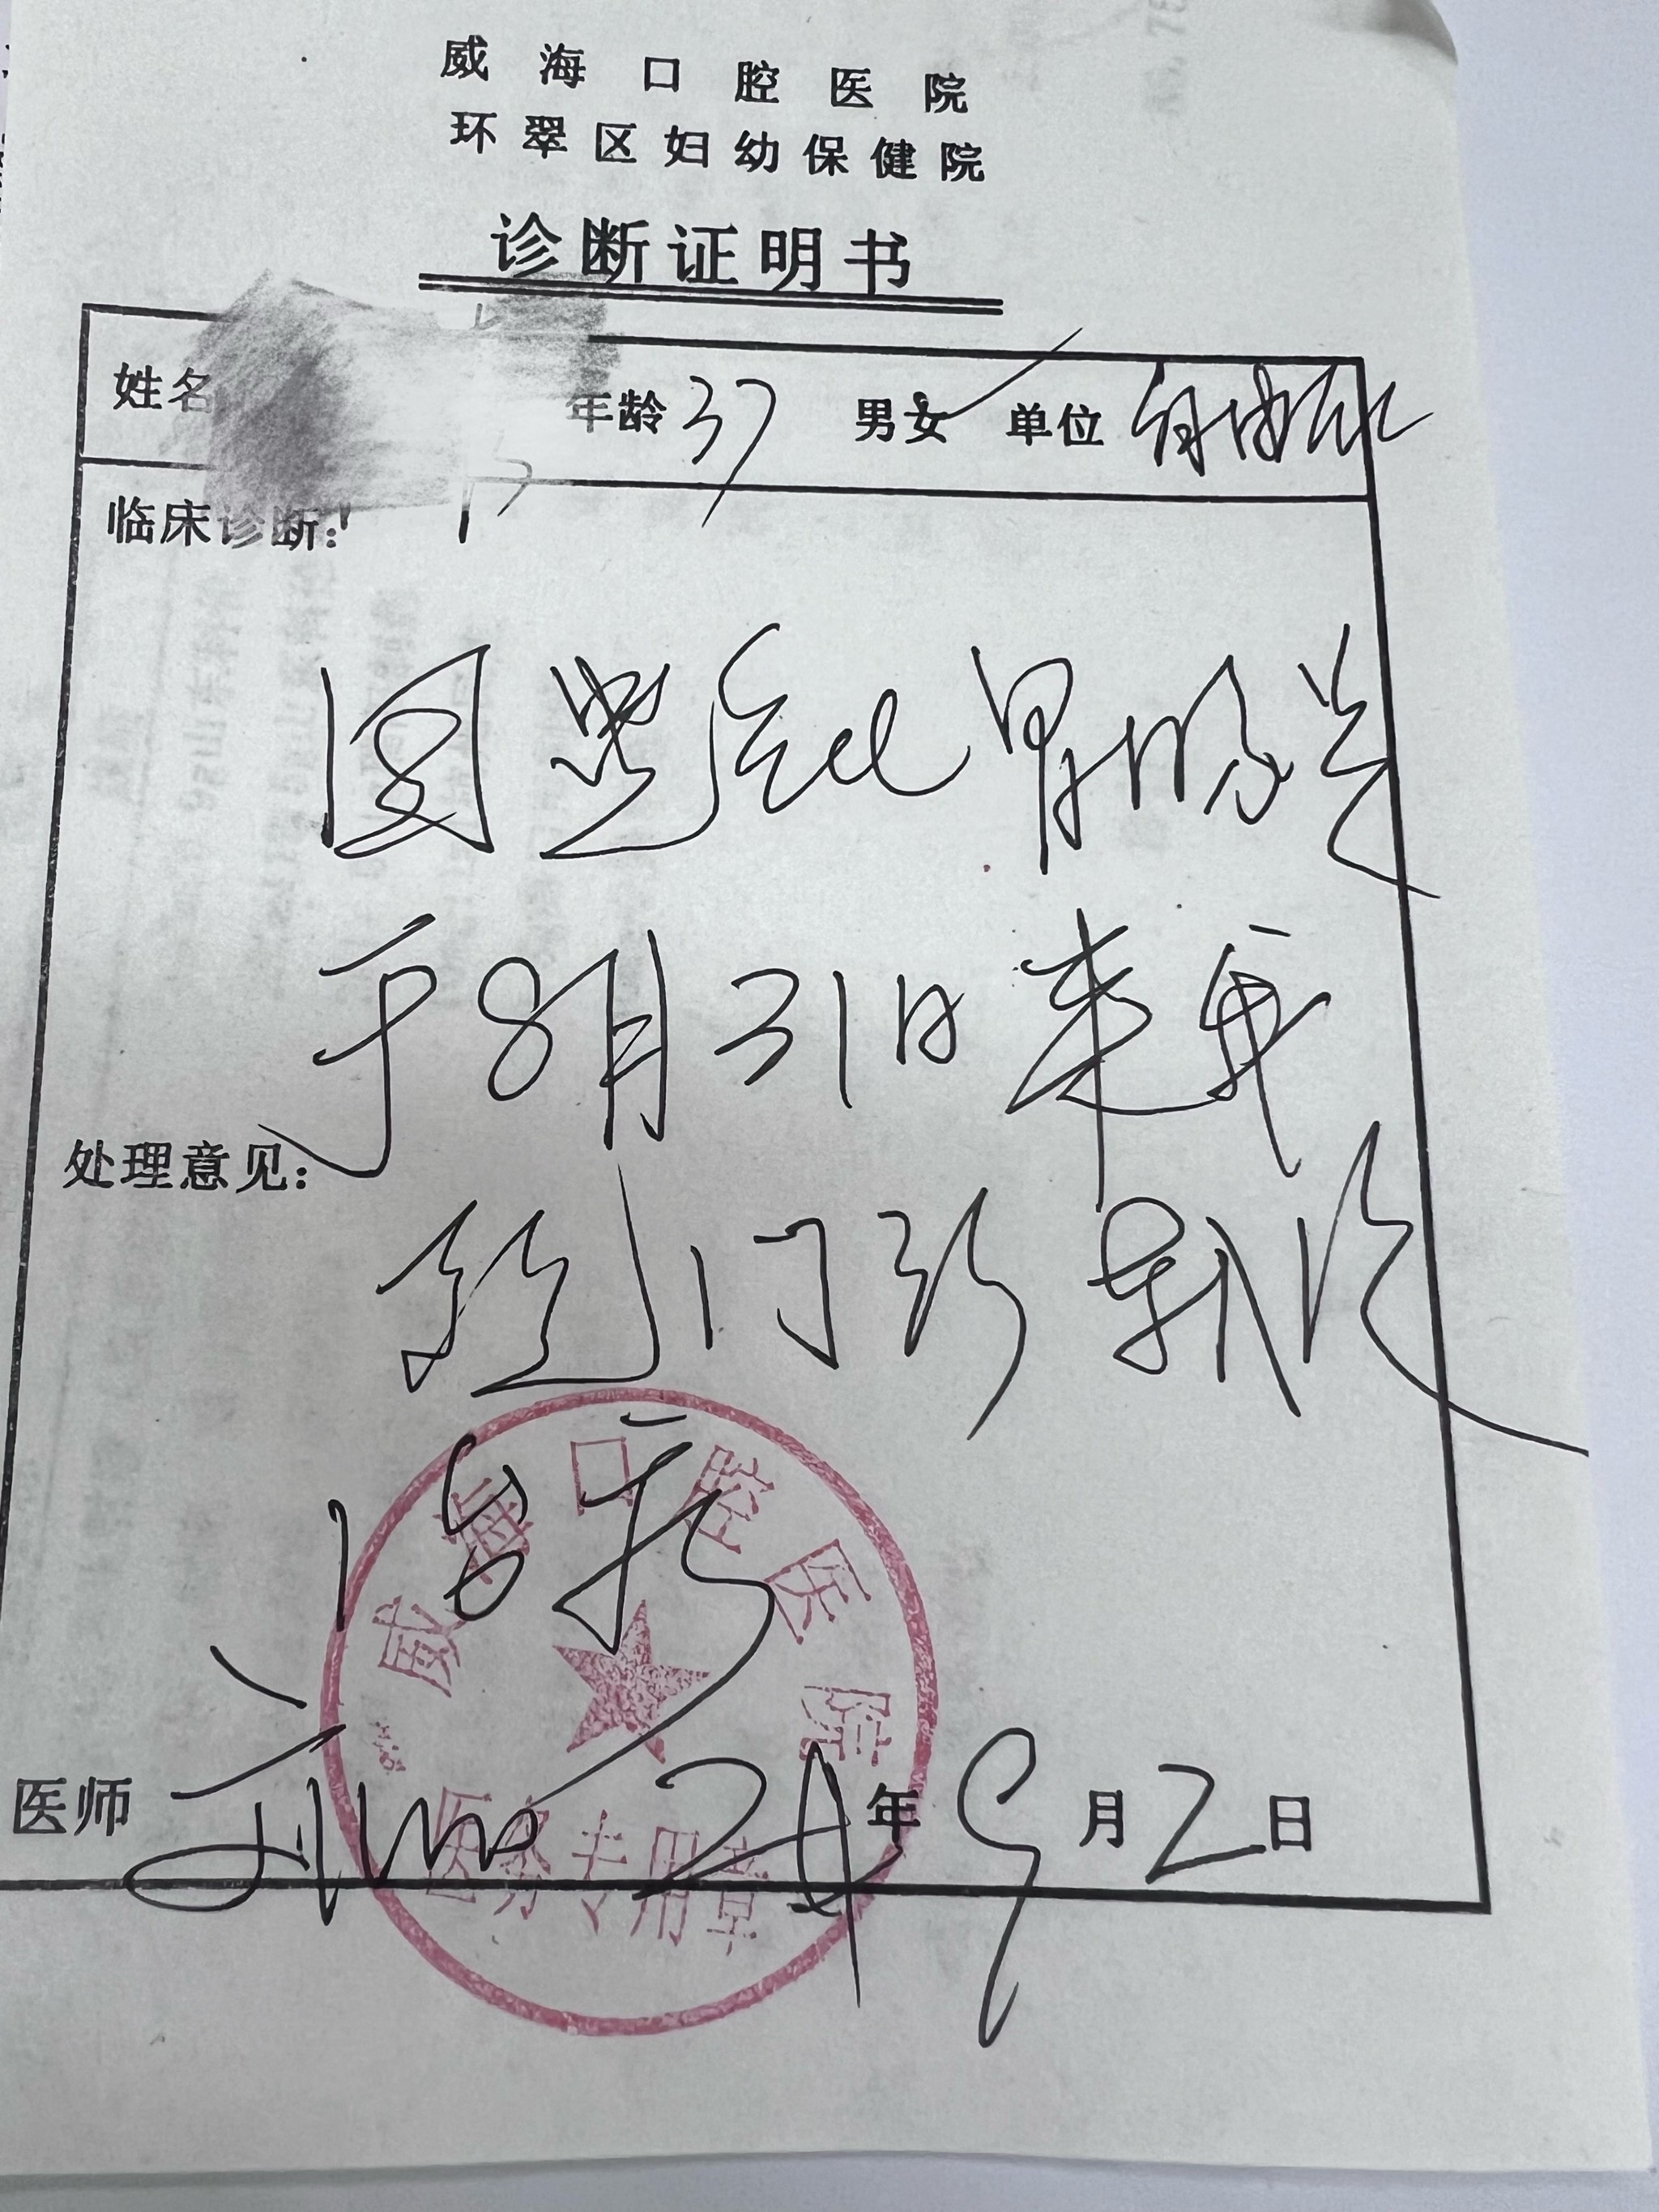 威海口腔医院
环翠区妇幼保健院
诊断证明书
姓名 年龄 37 男女 单位 自由职业
临床诊断：
因患急性胃肠炎
于8月31日来我
处理意见：
院门诊
治疗
威海口腔医院
医师 24年9月2日
医务专用章